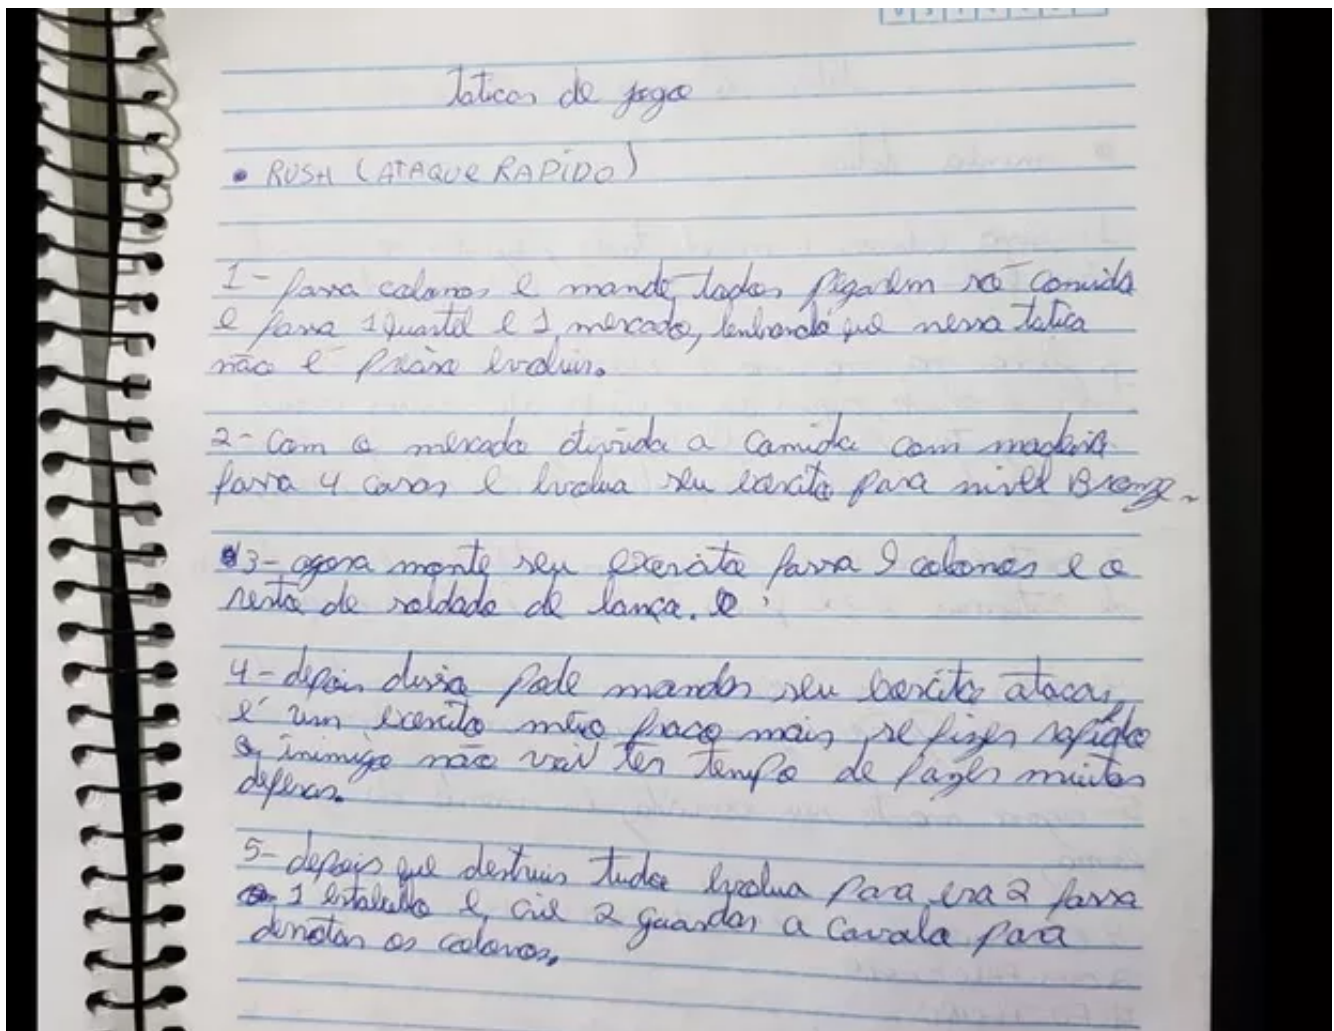 Taticas de jogo
• RUSH (ATAQUE RAPIDO)
1- fassa colonos e mande todos pegarem só comida
e fassa 1 quartel e 1 mercado, lembrando que nessa tatica
não é preciso evoluir.
2- Com o mercado divida a comida com madeira
fassa 4 casas e evolua seu exercito para nivel Bronze.
3- agora monte seu exercito fassa 9 colonos e o
resto de soldado de lança.
4- depois dissa pode mandar seu exercito atacar,
é um exercito meio fraco mais se fizer rapido
o inimigo não vai ter tempo de fazer muitas
defesas.
5- depois que destruir tudo evolua para era 2 fassa
1 estabullo e crie 2 guardas a cavalo para
derrotar os colonos.